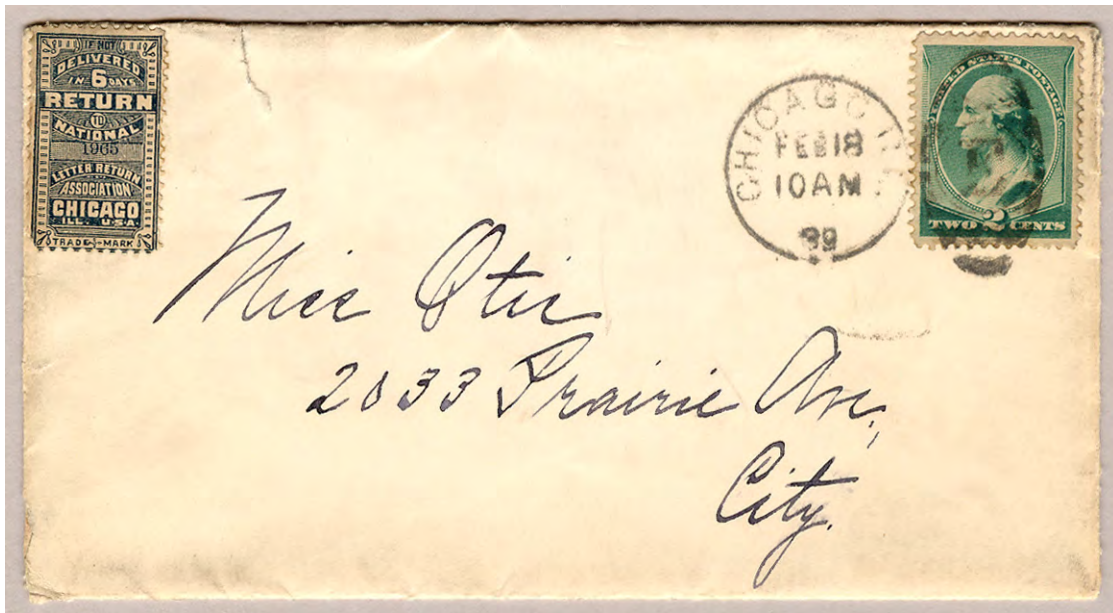 IF NOT
DELIVERED
IN 6 DAYS
RETURN
TO
NATIONAL
1965
LETTER RETURN
ASSOCIATION
CHICAGO
ILL. U.S.A.
TRADE-MARK
CHICAGO ILL.
FEB 18
10AM
89
UNITED STATES POSTAGE
TWO 2 CENTS
Miss Otis
2033 Prairie Ave,
City.